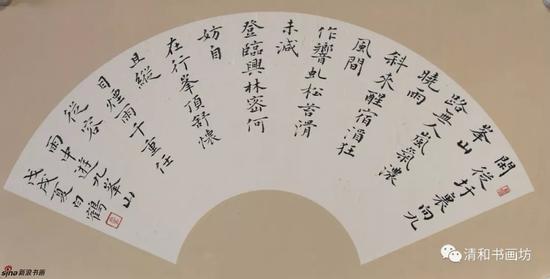 後圩裏向九
峯山
路無人嵐氣濃
曉雨
斜來醒宿酒狂
風間
作響虬松苔滑
未減
登臨興林密何
妨自
在行峯頂舒懷
且縱
目煙雨千重任
從容
雨中遊九峯山
戊戌夏白鶴
sina新浪书画
清和书画坊